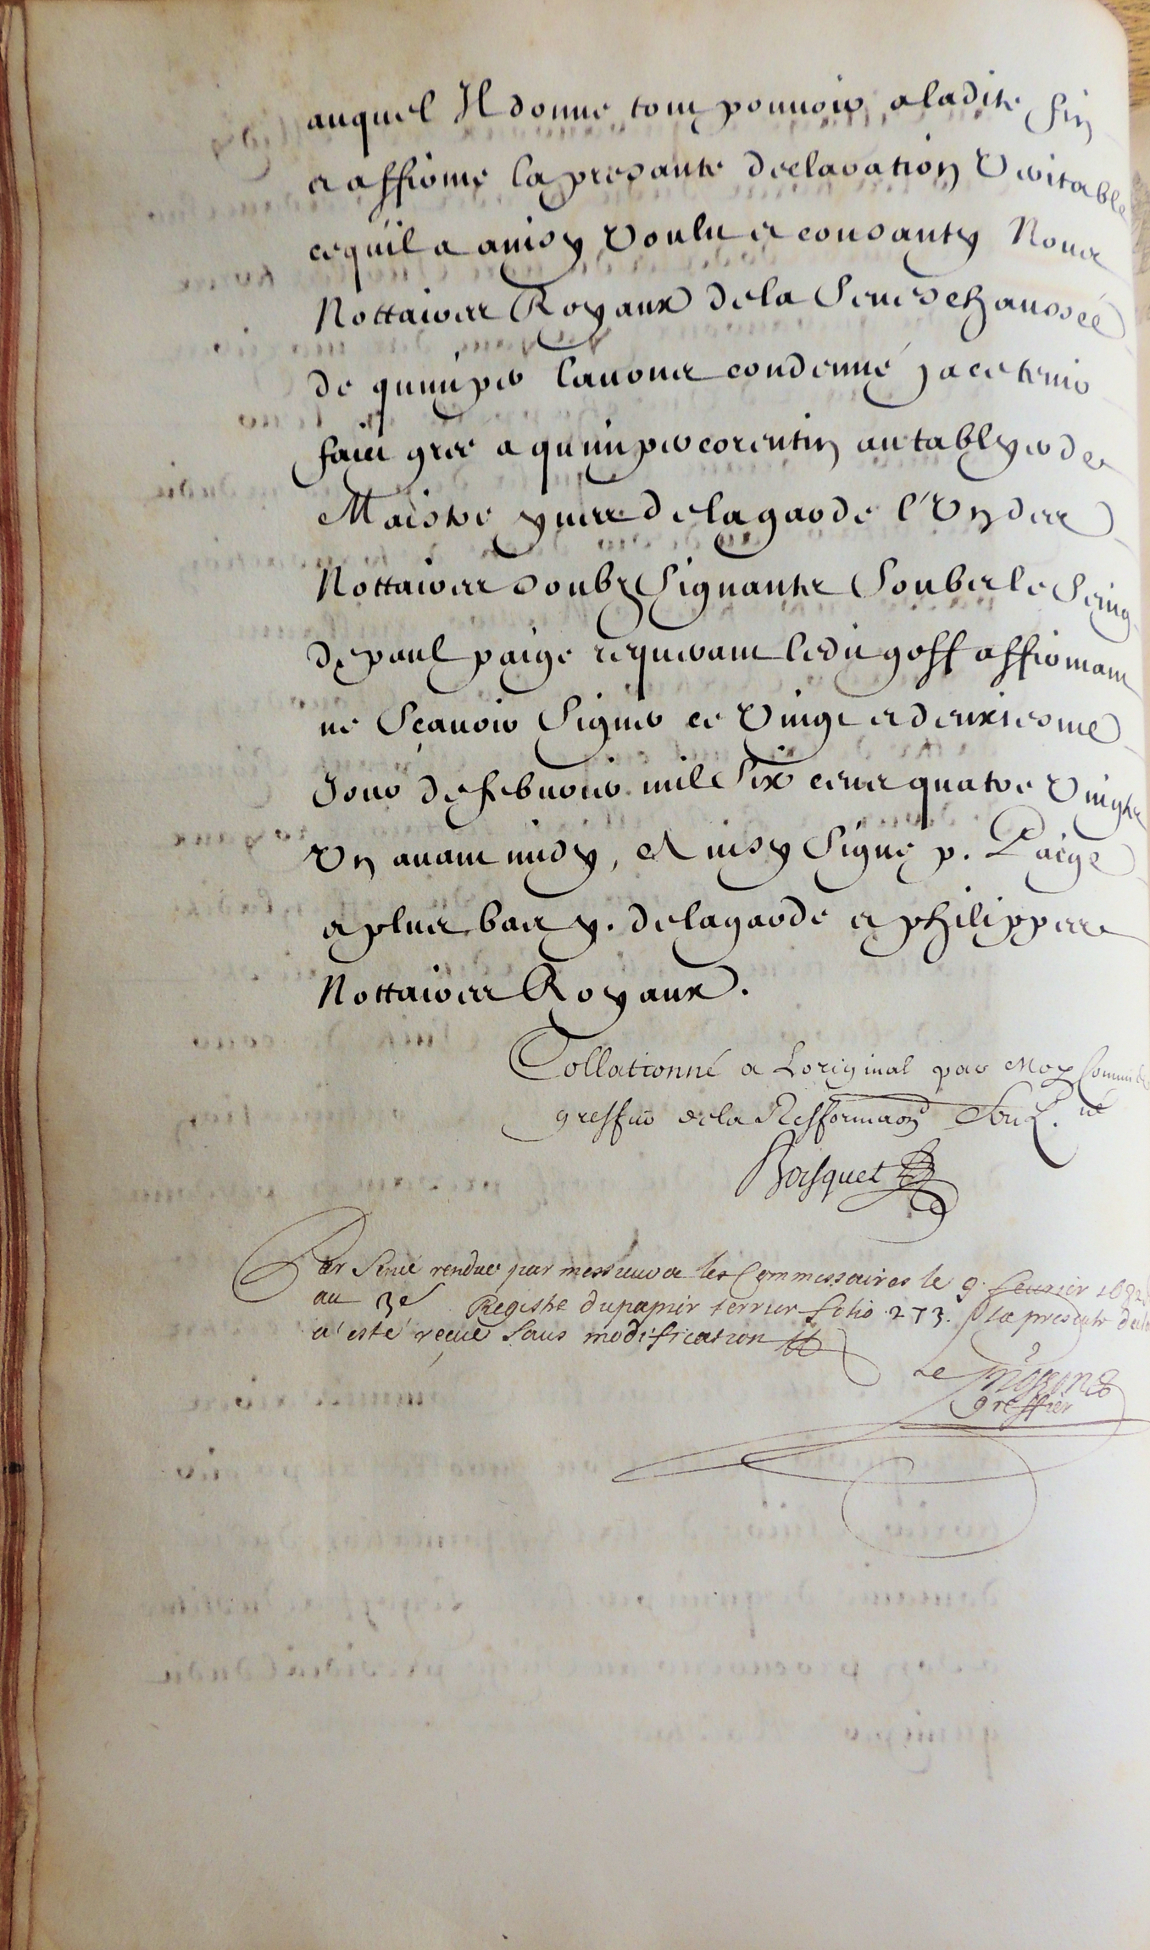 auquel Il donne tout pouvoir a ladite fin
et affirme la presante declaration veritable
ce quil a ainsy voulu et consanty Nous
Nottaires Royaux de la Seneschaussée
de quimper l'avons condenné, a ce tenir
faict gréé a quimpercorentin au tablyer de
Maistre yves delagarde l'Un des
Nottaires soubz signants soubs le seing
de paul paige requerant ledit goff affirmant
ne sçavoir signer ce vingt et deuxiesme
Jour de febvrier mil six cents quatre vingts
un avant midy, Ainsy signé p. Paige
et plus bas y. delagarde et philippes
Nottaires Royaux.
Collationné a L'original par Moy Commis
greffier de la Refformaon
Bosquet
Par Sence rendue par messieurs les Commissaires le 9. feuvrier 1682
au 3e Registre du papier terrier folio 273. la presente decla
a esté reçue sans modification
Le
greffier